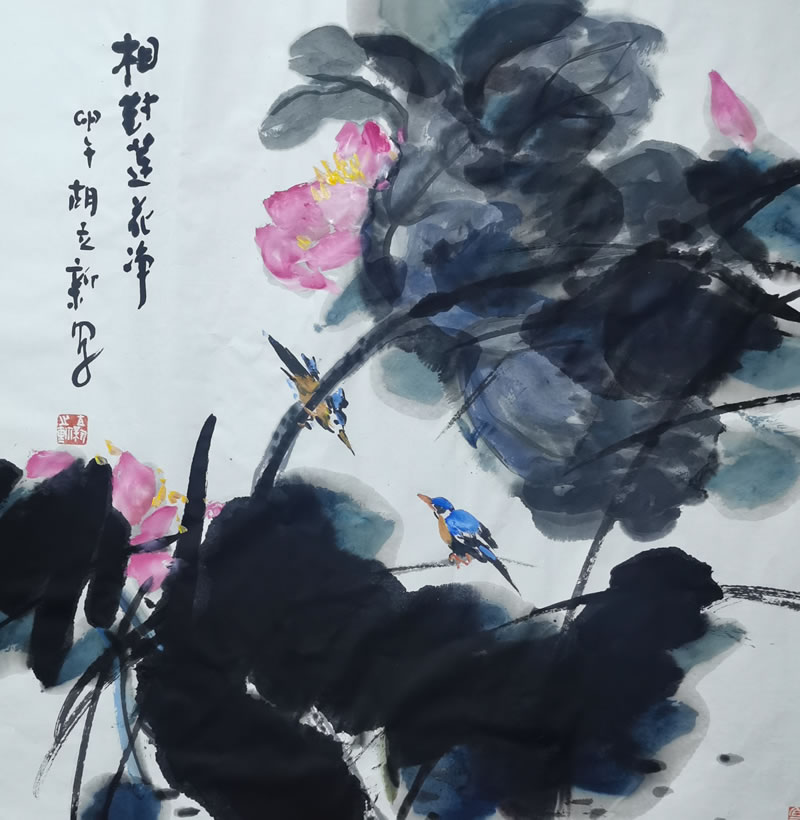 相對蓮花净
甲午胡立新写